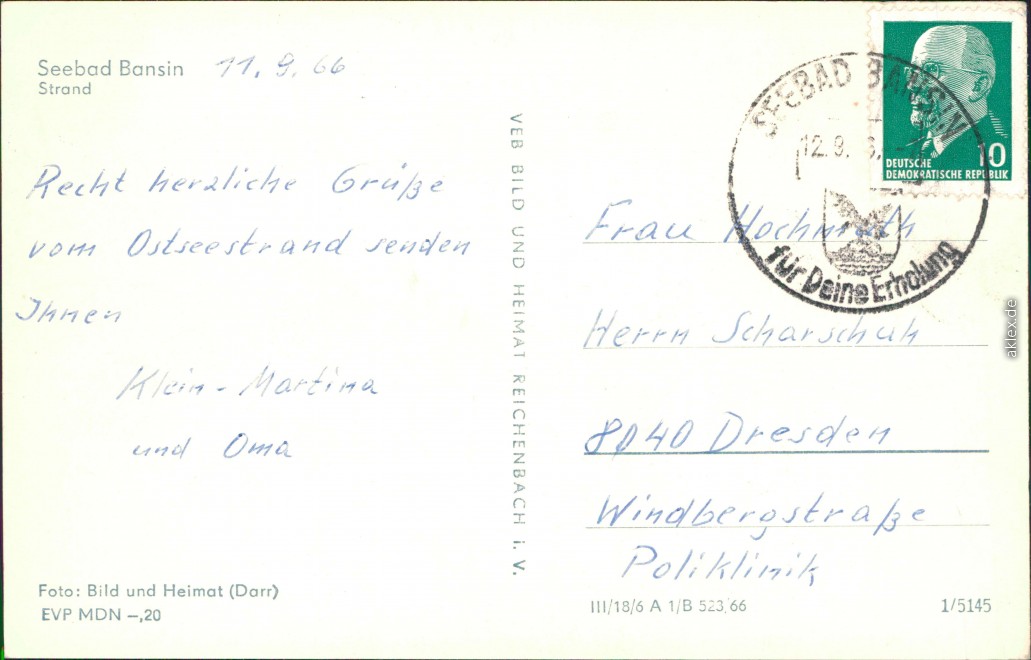 Seebad Bansin 11. 9. 66
Strand
Recht herzliche Grüße
vom Ostseestrand senden
Ihnen
Klein-Martina
und Oma
Foto: Bild und Heimat (Darr)
EVP MDN –,20
VEB BILD UND HEIMAT REICHENBACH i. V.
SEEBAD BANSIN
12.9.
für Deine Erholung
10
DEUTSCHE
DEMOKRATISCHE REPUBLIK
Frau Hochmuth
Herrn Scharschuh
8040 Dresden
Windbergstraße
Poliklinik
III/18/6 A 1/B 523/66 1/5145
aklex.de